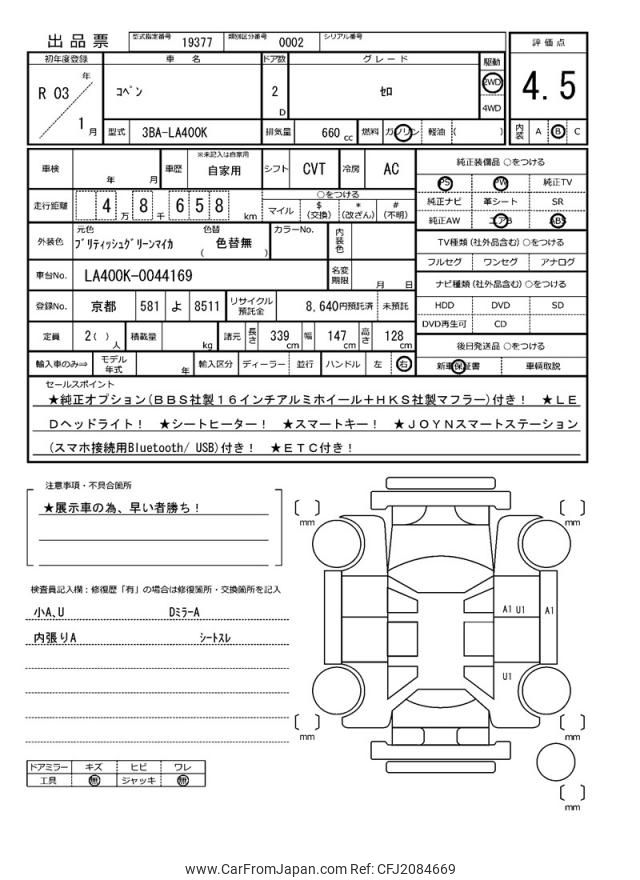 出品票 型式指定番号 19377 類別区分番号 0002 シリアル番号
評価点
4.5
内装 A B C
初年度登録 車名 ドア数 グレード 駆動
R 03 年 1 月 コペン 2 D セロ 2WD 4WD
型式 3BA-LA400K 排気量 660 cc 燃料 ガソリン 軽油 ( )
車検 年 月 車歴 ※未記入は自家用 自家用 シフト CVT 冷房 AC
走行距離 4 万 8 千 6 5 8 km ○をつける
マイル $ (交換) * (改ざん) # (不明)
外装色 元色 ブリティッシュグリーンマイカ 色替 ( 色替無 ) カラーNo. 内装色
車台No. LA400K-0044169 名変期限 月 日
登録No. 京都 581 よ 8511 リサイクル預託金 8,640円預託済 未預託
定員 2( ) 人 積載量 kg 諸元 長さ 339 cm 幅 147 cm 高さ 128 cm
輸入車のみ⇒ モデル年式 年 輸入区分 ディーラー 並行 ハンドル 左 右
純正装備品 ○をつける
PS PW 純正TV
純正ナビ 革シート SR
純正AW エアB ABS
TV種類 (社外品含む) ○をつける
フルセグ ワンセグ アナログ
ナビ種類 (社外品含む) ○をつける
HDD DVD SD
DVD再生可 CD
後日発送品 ○をつける
新車保証書 車輌取説
セールスポイント
★純正オプション(BBS社製16インチアルミホイール+HKS社製マフラー)付き! ★LE
Dヘッドライト! ★シートヒーター! ★スマートキー! ★JOYNスマートステーション
(スマホ接続用Bluetooth/ USB)付き! ★ETC付き!
注意事項・不具合箇所
★展示車の為、早い者勝ち!
検査員記入欄:修復歴「有」の場合は修復箇所・交換箇所を記入
小A、U Dミラ-A
内張りA シートスレ
ドアミラー キズ ヒビ ワレ
工具 無 ジャッキ 無
mm mm
A1 U1 A1
U1
mm mm
mm
www.CarFromJapan.com Ref: CFJ2084669